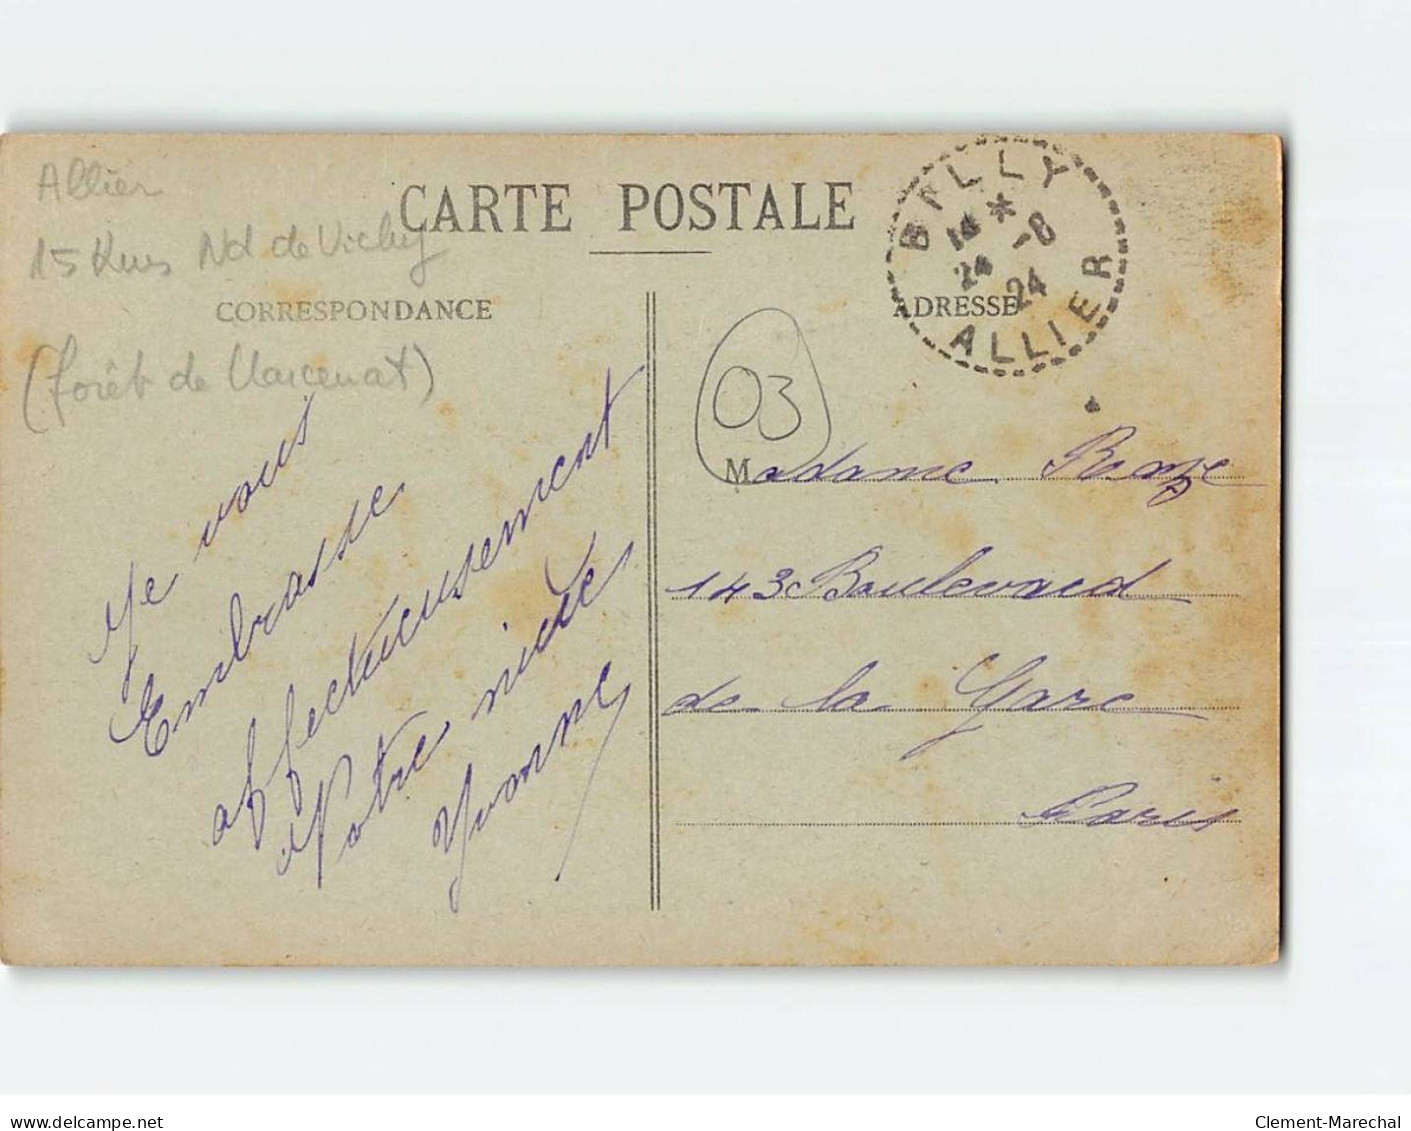 Allier
15 Kms Nd de Vichy
(forêt de Marcenat)
CARTE POSTALE
CORRESPONDANCE
ADRESSE
BILLY
14 *
24 -8
24
ALLIER
03
Je vous
Embrasse
affectueusement
Votre nièce
Yvonne
Madame
143 Boulevard
de la Gare
Paris
delcampe.net
Clement-Marechal